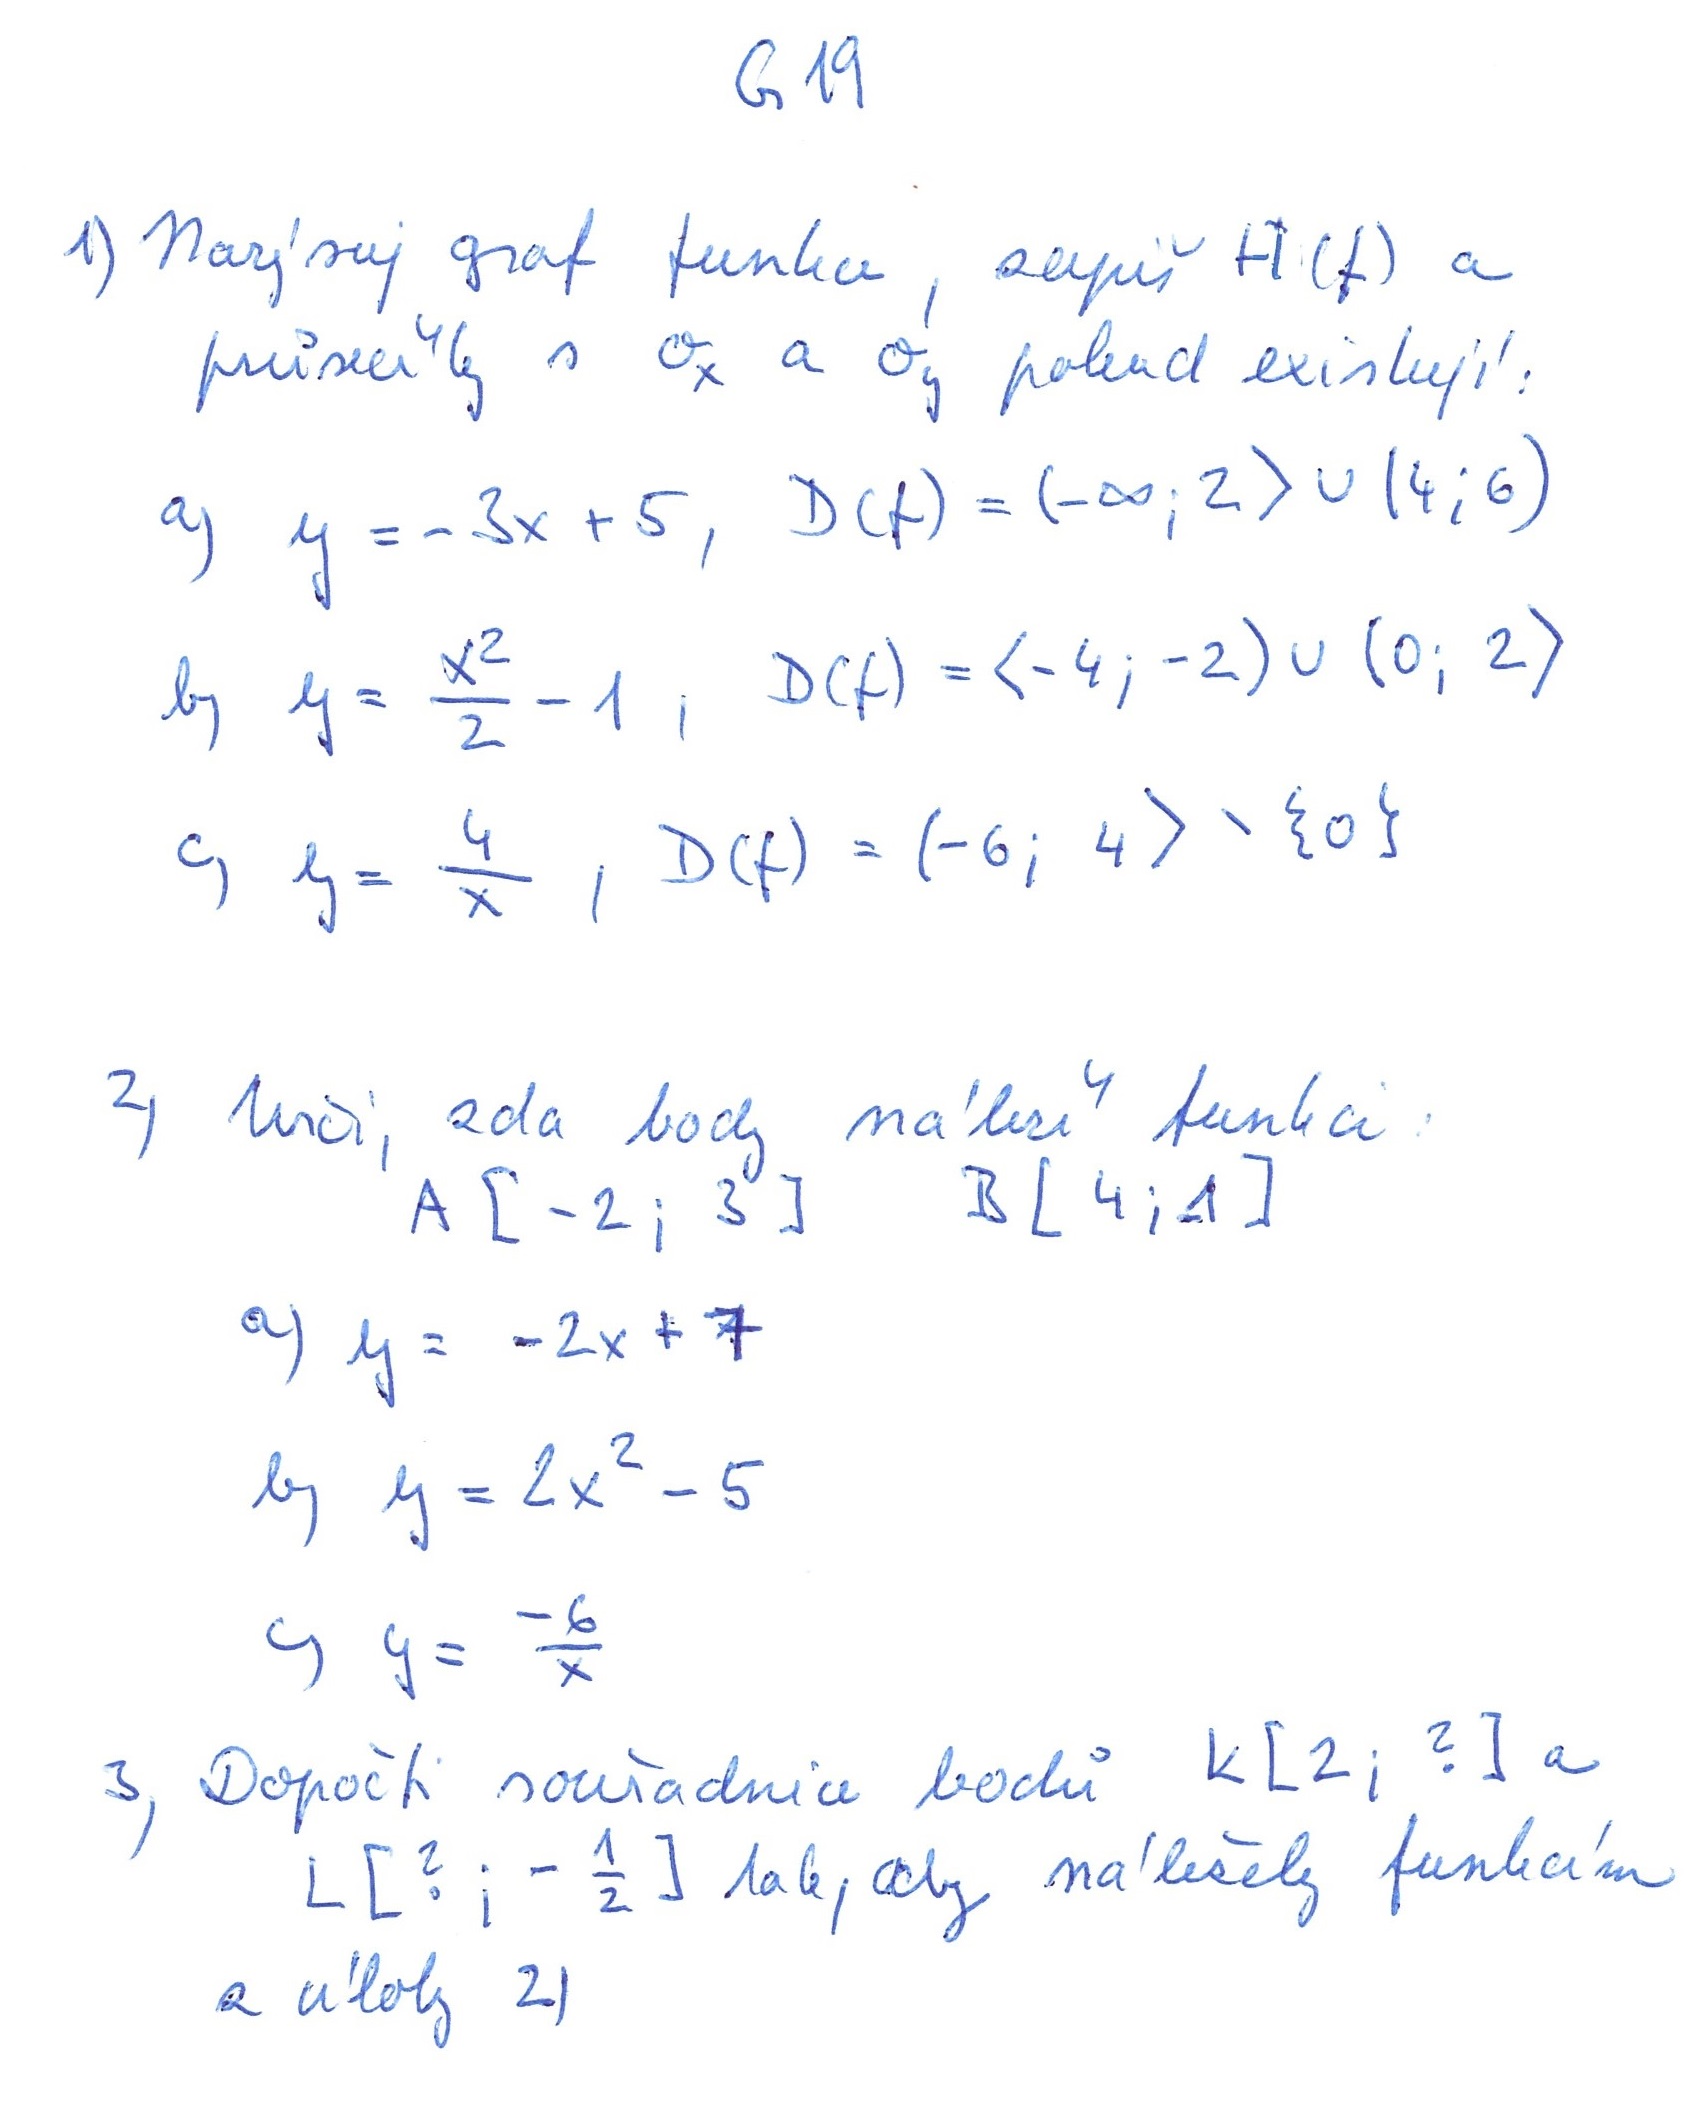 G 19
1) Narýsuj graf funkce, zapiš H(f) a
průsečíky s Ox a Oy pokud existují:
a) y = -3x + 5, D(f) = (-∞; 2⟩ ∪ (4; 6)
b) y = x²/2 - 1; D(f) = ⟨-4; -2) ∪ (0; 2⟩
c) y = 4/x; D(f) = (-6; 4⟩ \ {0}
2) Urči, zda body náleží funkci:
A [-2; 3] B [4; 1]
a) y = -2x + 7
b) y = 2x² - 5
c) y = -6/x
3) Dopočti souřadnice bodů K [2; ?] a
L [?; -1/2] tak, aby náležely funkcím
z úlohy 2)